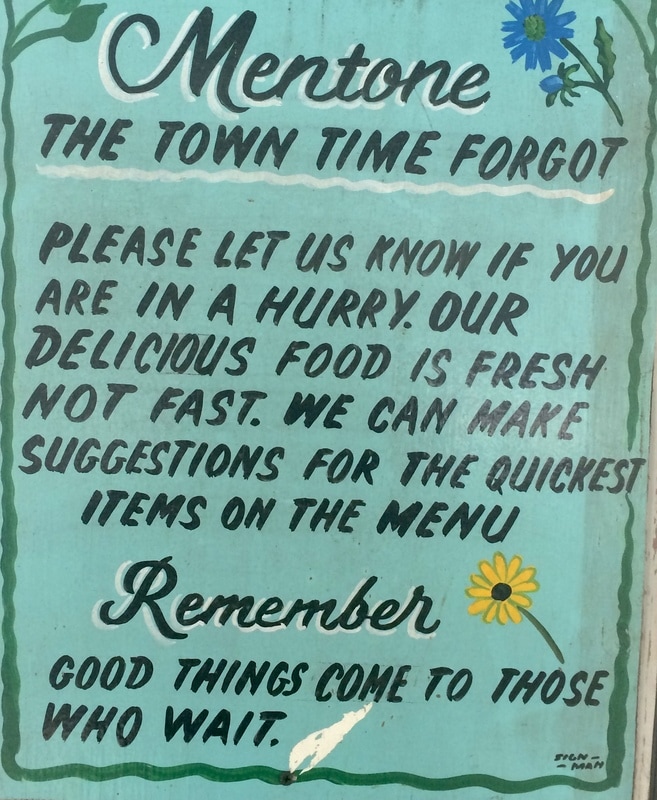 Mentone
THE TOWN TIME FORGOT
PLEASE LET US KNOW IF YOU
ARE IN A HURRY. OUR
DELICIOUS FOOD IS FRESH
NOT FAST. WE CAN MAKE
SUGGESTIONS FOR THE QUICKEST
ITEMS ON THE MENU
Remember
GOOD THINGS COME TO THOSE
WHO WAIT.
SIGN-
-MAN